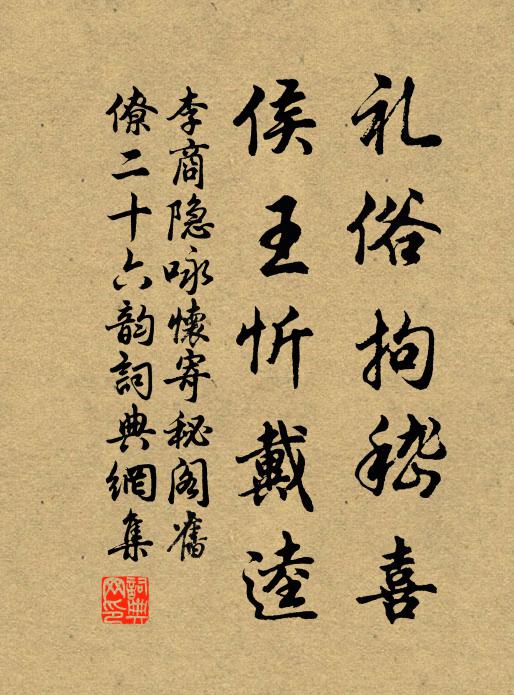 礼俗拘嵇喜
侯王忻戴逵
李商隐咏懷寄秘阁舊
僚二十六韵詞典網集
詞典
网印